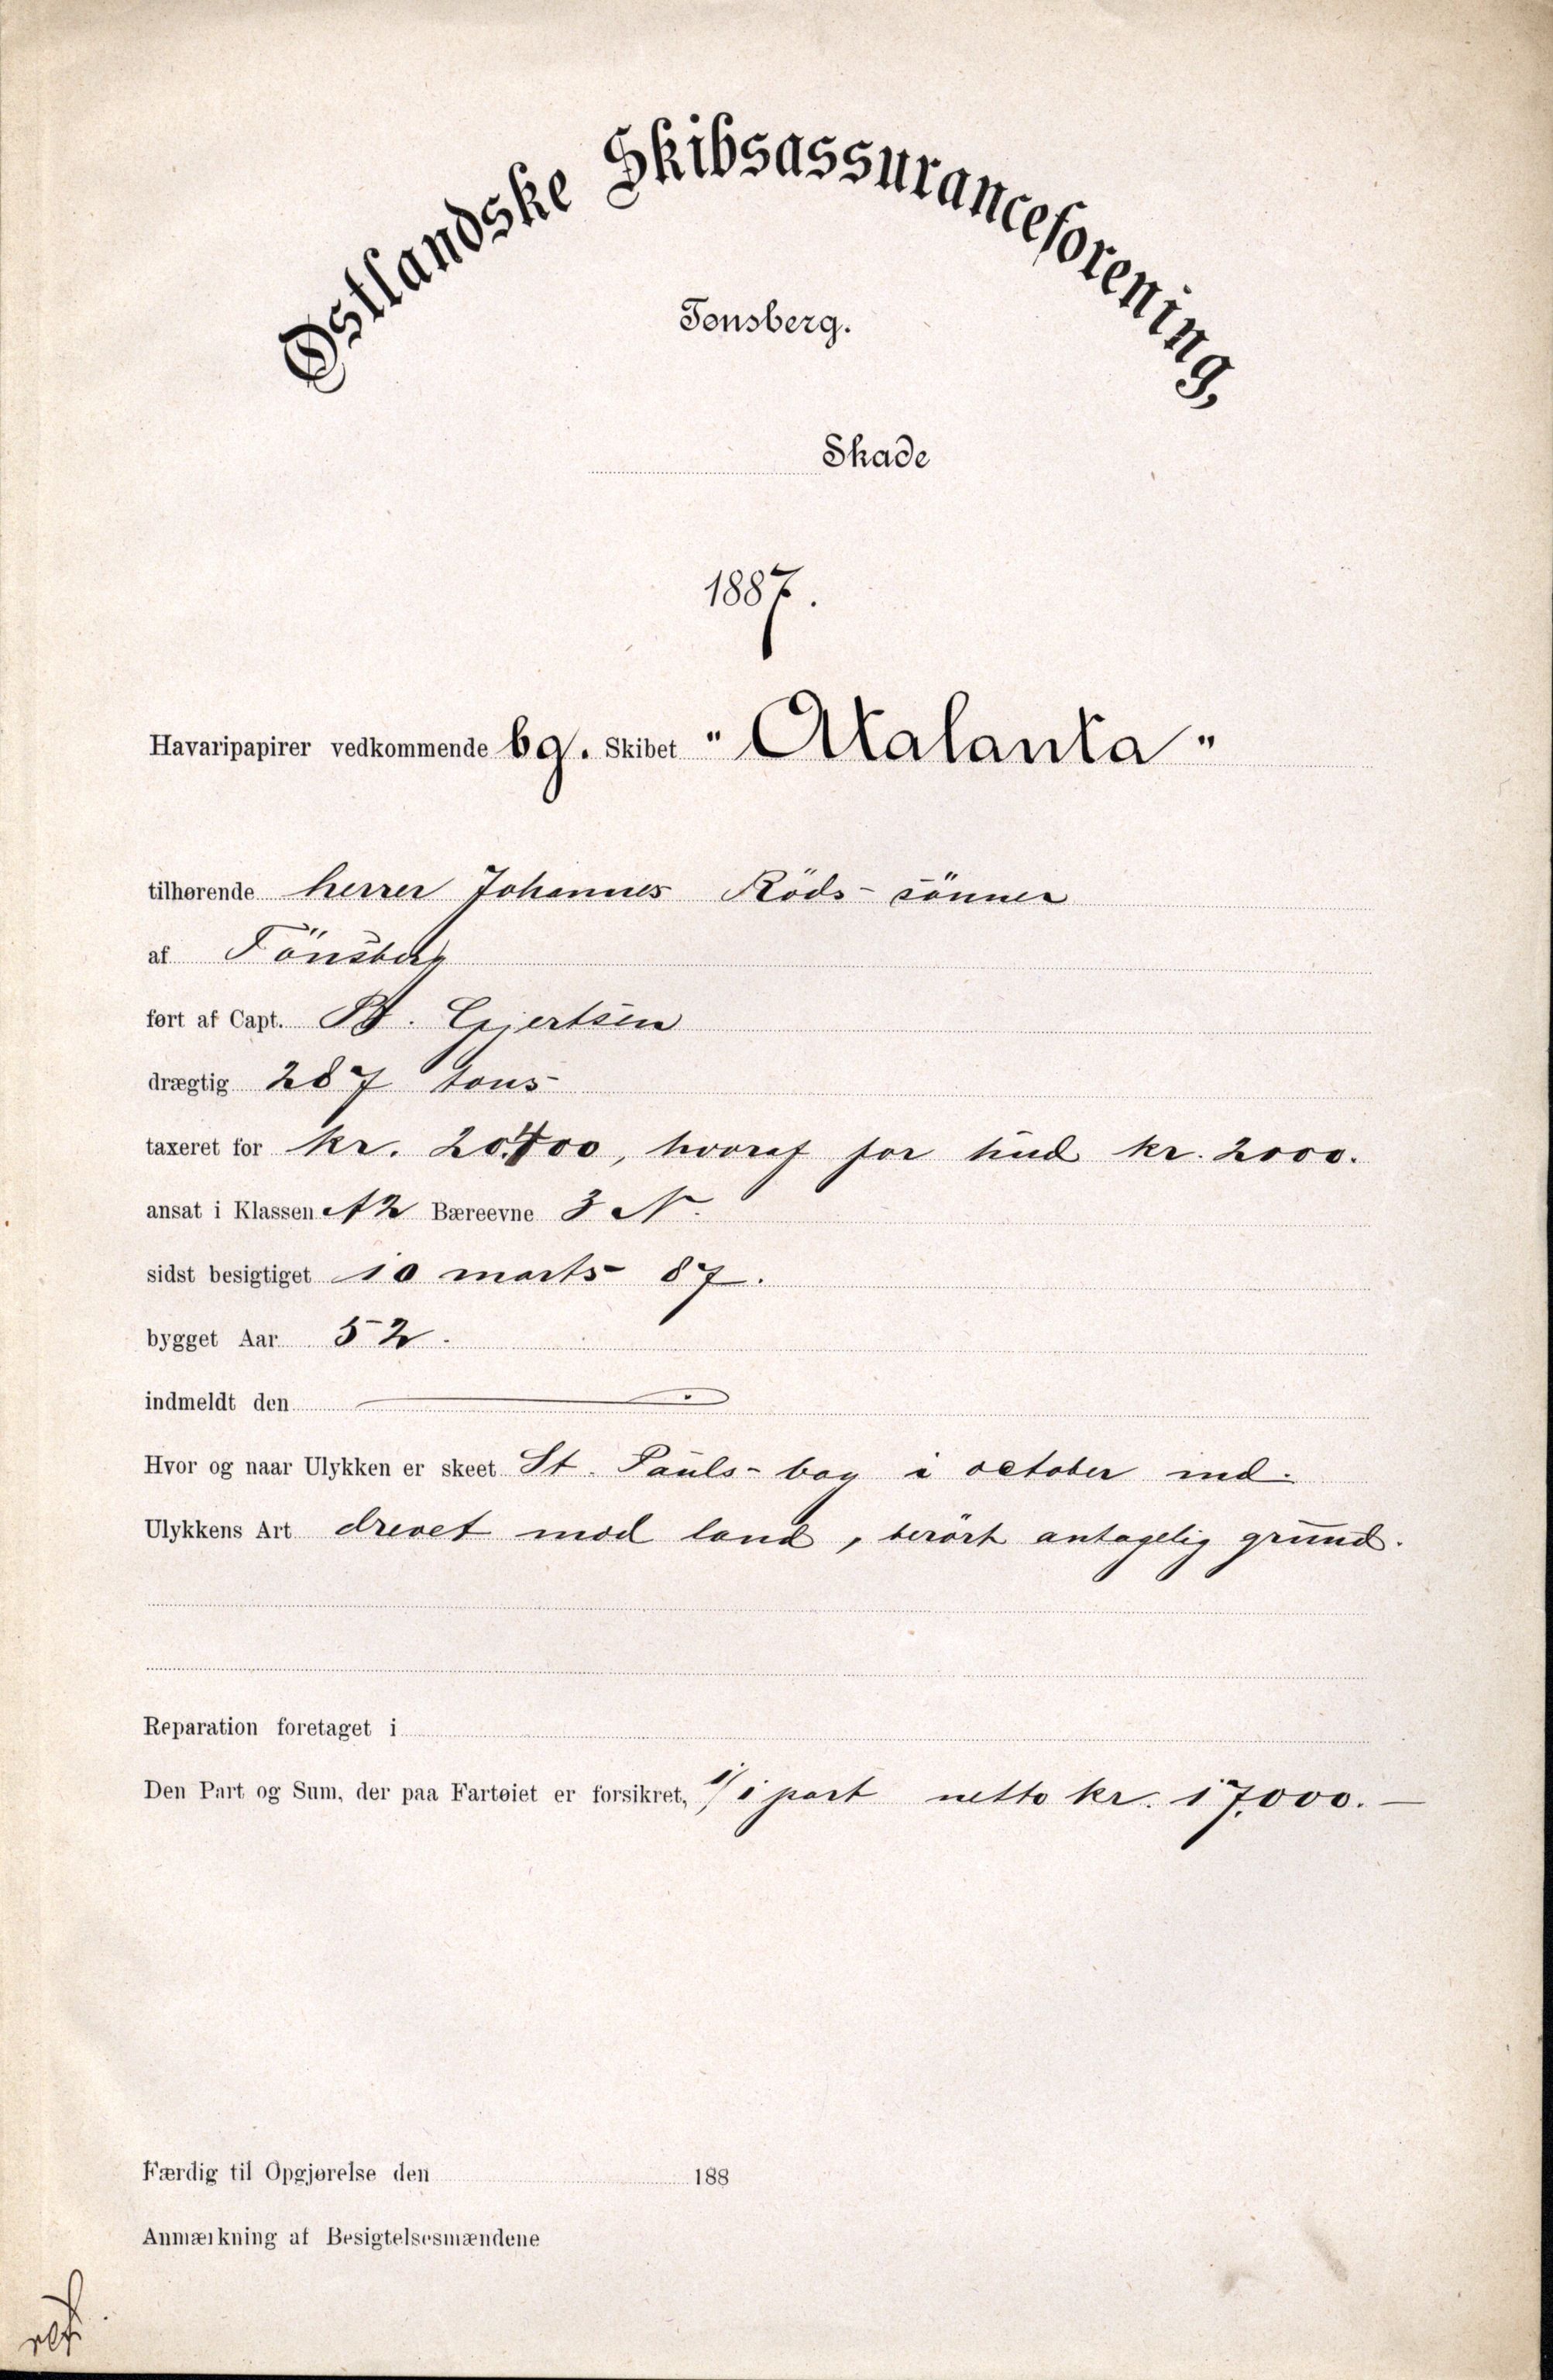 Østlandske Skibsassuranceforening,
Tønsberg.
Skade
1887.
Havaripapirer vedkommende bg. Skibet "Atalanta"
tilhørende herrer Johannes Röds-sönner
af Tönsberg
ført af Capt. Gjertsen
drægtig 287 tons
taxeret for kr. 20.400, hvoraf for hud kr. 2000.
ansat i Klassen A2 Bæreevne 3 N.
sidst besigtiget 10 marts 87.
bygget Aar 52.
indmeldt den
Hvor og naar Ulykken er skeet St. Pauls-bay i october
Ulykkens Art drevet mod land, berört antagelig grund.
Reparation foretaget i
Den Part og Sum, der paa Fartøiet er forsikret, 1/1 part netto kr. 17.000.—
Færdig til Opgjørelse den 188
Anmærkning af Besigtelsesmændene